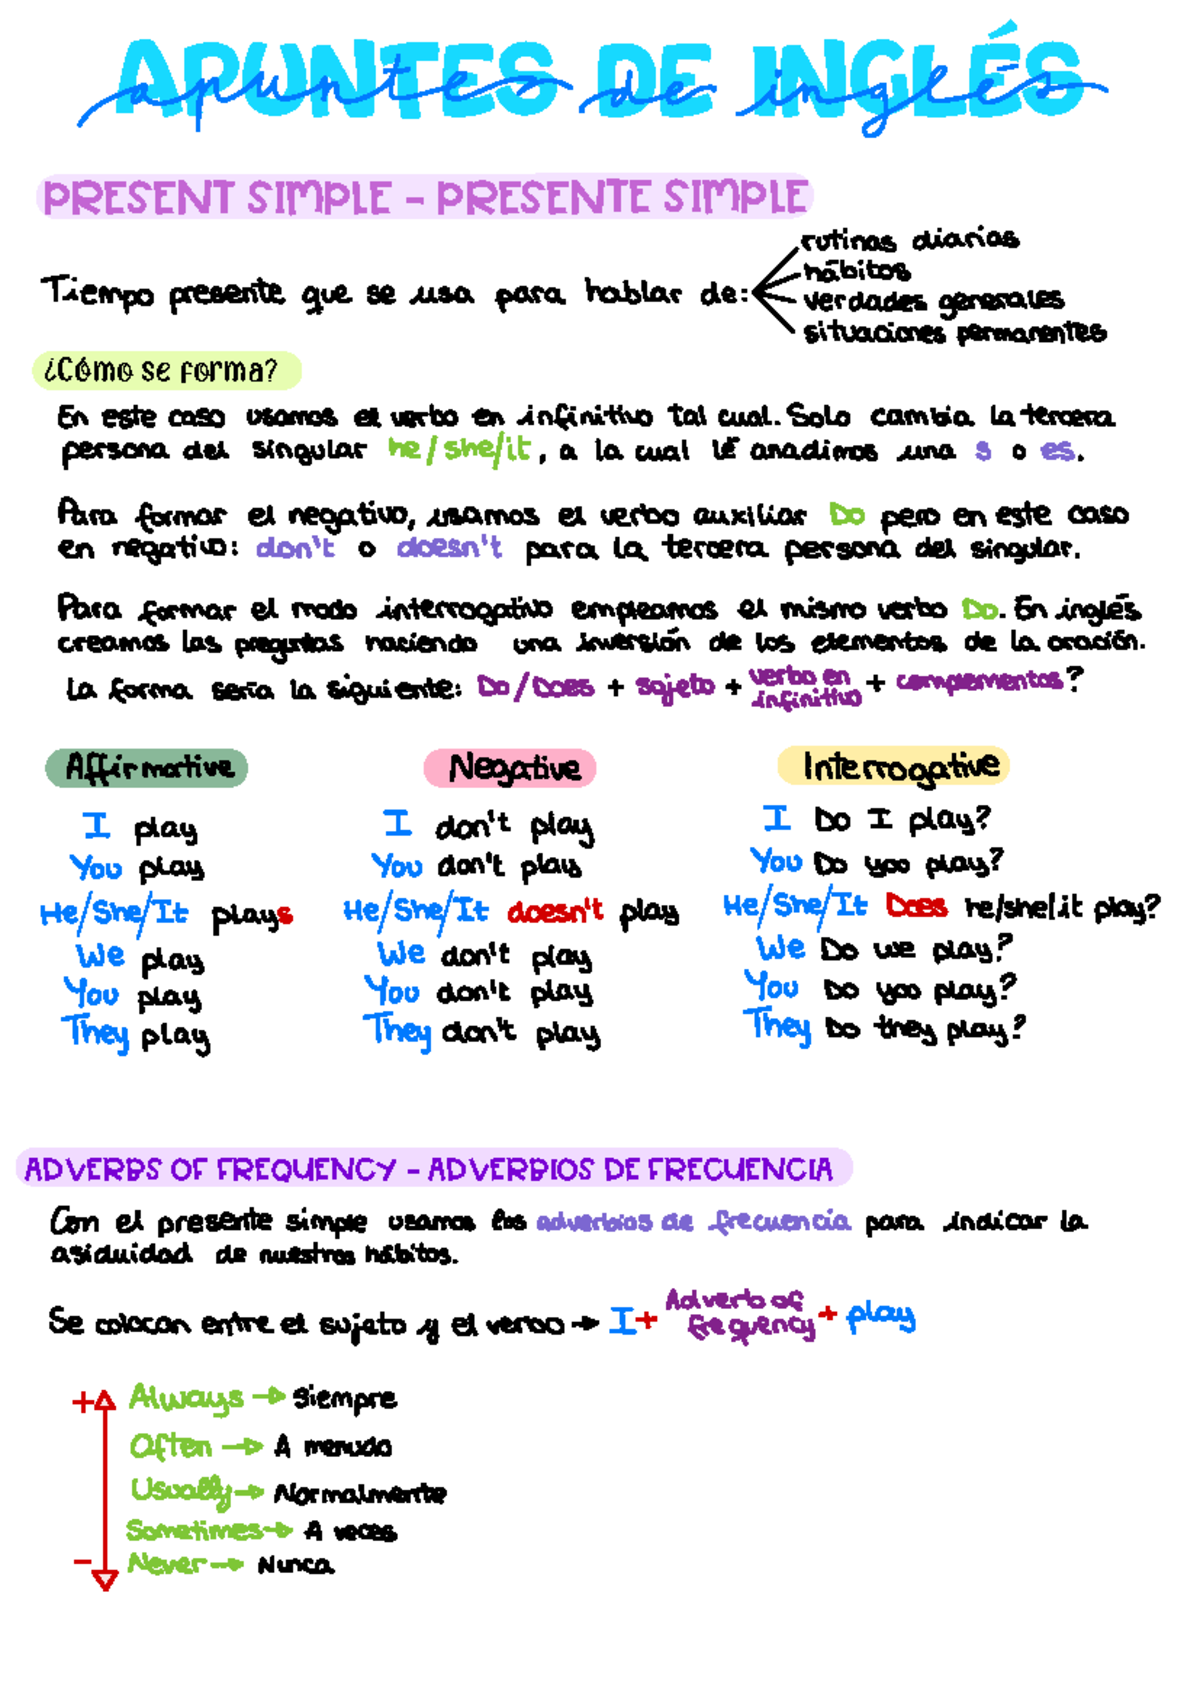 APUNTES DE INGLÉS
apuntes de inglés
PRESENT SIMPLE - PRESENTE SIMPLE
Tiempo presente que se usa para hablar de:
rutinas diarias
hábitos
verdades generales
situaciones permanentes
¿Cómo se forma?
En este caso usamos el verbo en infinitivo tal cual. Solo cambia la tercera
persona del singular he/she/it, a la cual le añadimos una s o es.
Para formar el negativo, usamos el verbo auxiliar Do pero en este caso
en negativo: don't o doesn't para la tercera persona del singular.
Para formar el modo interrogativo empleamos el mismo verbo Do. En inglés
creamos las preguntas haciendo una inversión de los elementos de la oración.
La forma sería la siguiente: Do/Does + sujeto + verbo en infinitivo + complementos?
Affirmative Negative Interrogative
I play I don't play I Do I play?
You play You don't play You Do you play?
He/She/It plays He/She/It doesn't play He/She/It Does he/she/it play?
We play We don't play We Do we play?
You play You don't play You Do you play?
They play They don't play They Do they play?
ADVERBS OF FREQUENCY - ADVERBIOS DE FRECUENCIA
Con el presente simple usamos los adverbios de frecuencia para indicar la
asiduidad de nuestros hábitos.
Se colocan entre el sujeto y el verbo → I + Adverb of frequency + play
+ Always → Siempre
Often → A menudo
Usually → Normalmente
Sometimes → A veces
- Never → Nunca